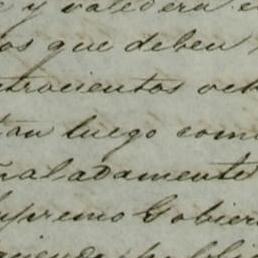 y valedera
os que deben
trocientos och
tan luego com
ñaladamente
upremo Gobier